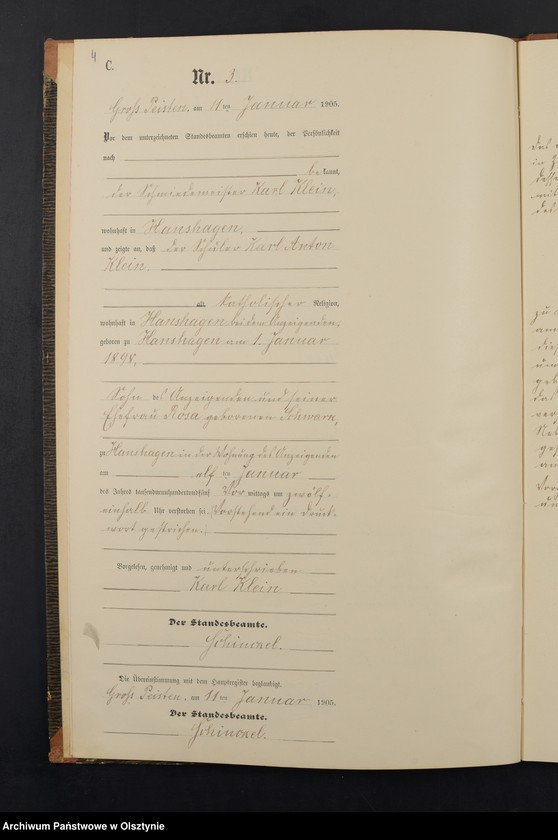 4
C.
Nr. 3
Groß Peisten, am 11ten Januar 1905.
Vor dem unterzeichneten Standesbeamten erschien heute, der Persönlichkeit
nach
bekannt,
der Schmiedemeister Karl Klein,
wohnhaft in Hanshagen,
und zeigte an, daß der Schüler Karl Anton
Klein,
alt, katholischer Religion,
wohnhaft in Hanshagen bei dem Anzeigenden,
geboren zu Hanshagen am 1. Januar
1898,
Sohn des Anzeigenden und seiner
Ehefrau Rosa geborenen
zu Hanshagen in der Wohnung des Anzeigenden
am elften Januar
des Jahres tausendneunhundertundfünf Vormittags um zwölf
einhalb Uhr verstorben sei. Vorstehend ein Druck-
wort gestrichen.
Vorgelesen, genehmigt und unterschrieben
Karl Klein
Der Standesbeamte.
Schinckel.
Die Übereinstimmung mit dem Hauptregister beglaubigt.
Groß Peisten, am 11ten Januar 1905.
Der Standesbeamte.
Schinckel.
Archiwum Państwowe w Olsztynie